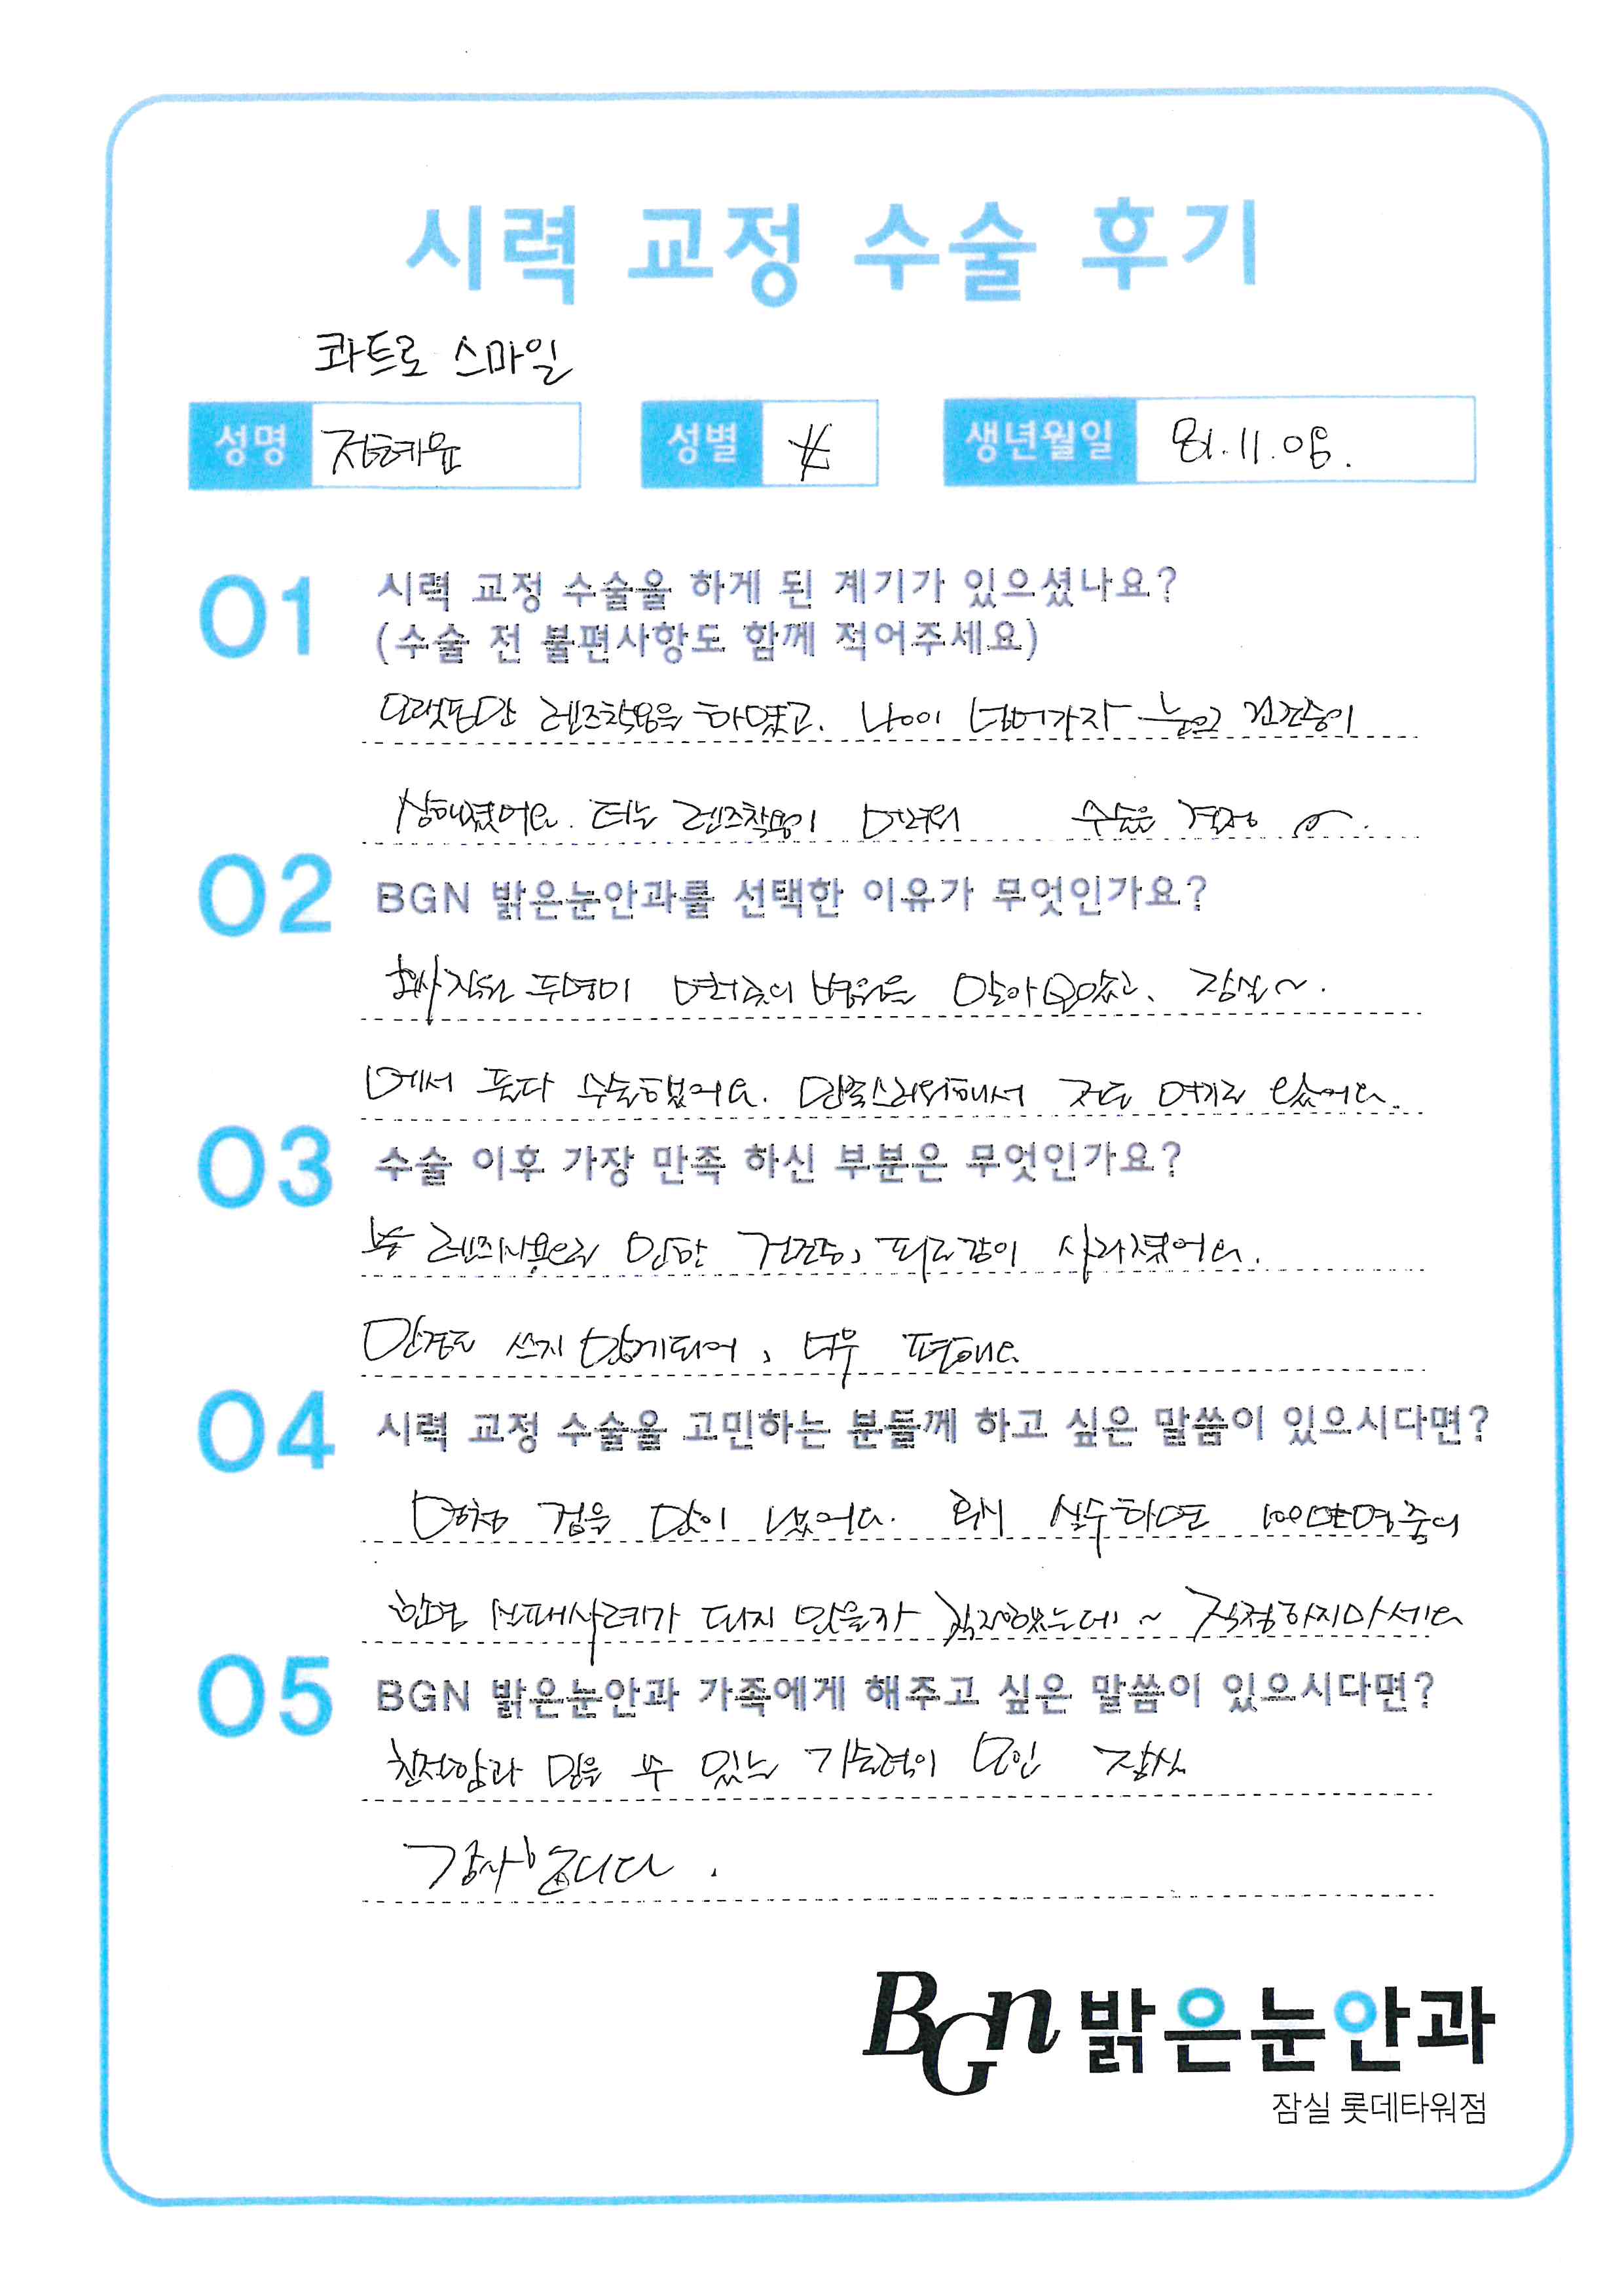 시력 교정 수술 후기
콰트로 스마일
성명 정혜윤 성별 女 생년월일 81.11.06.
01 시력 교정 수술을 하게 된 계기가 있으셨나요?
(수술 전 불편사항도 함께 적어주세요)
오랫동안 렌즈착용을 하였고. 나이 넘어가자 눈의 건조증이
심해졌어요. 더는 렌즈착용이 어려워 수술은 결정
02 BGN 밝은눈안과를 선택한 이유가 무엇인가요?
회사 직원 두명이 먼저 병원을 알아보았고, 잠실~.
에서 둘다 수술했어요. 만족스러워해서 저도 여기로 왔어요.
03 수술 이후 가장 만족 하신 부분은 무엇인가요?
렌즈사용으로 인한 건조증, 피로감이 사라졌어요.
안경도 쓰지 않게되어, 너무 편해요
04 시력 교정 수술을 고민하는 분들께 하고 싶은 말씀이 있으시다면?
엄청 겁을 많이 냈어요. 혹시 실수하면 100만명중에
한명 실패사례가 되지 않을까 걱정했는데~ 걱정하지마세요
05 BGN 밝은눈안과 가족에게 해주고 싶은 말씀이 있으시다면?
친절함과 믿을 수 있는 기술력이 모인 잠실
감사합니다.
BGN 밝은눈안과
잠실 롯데타워점